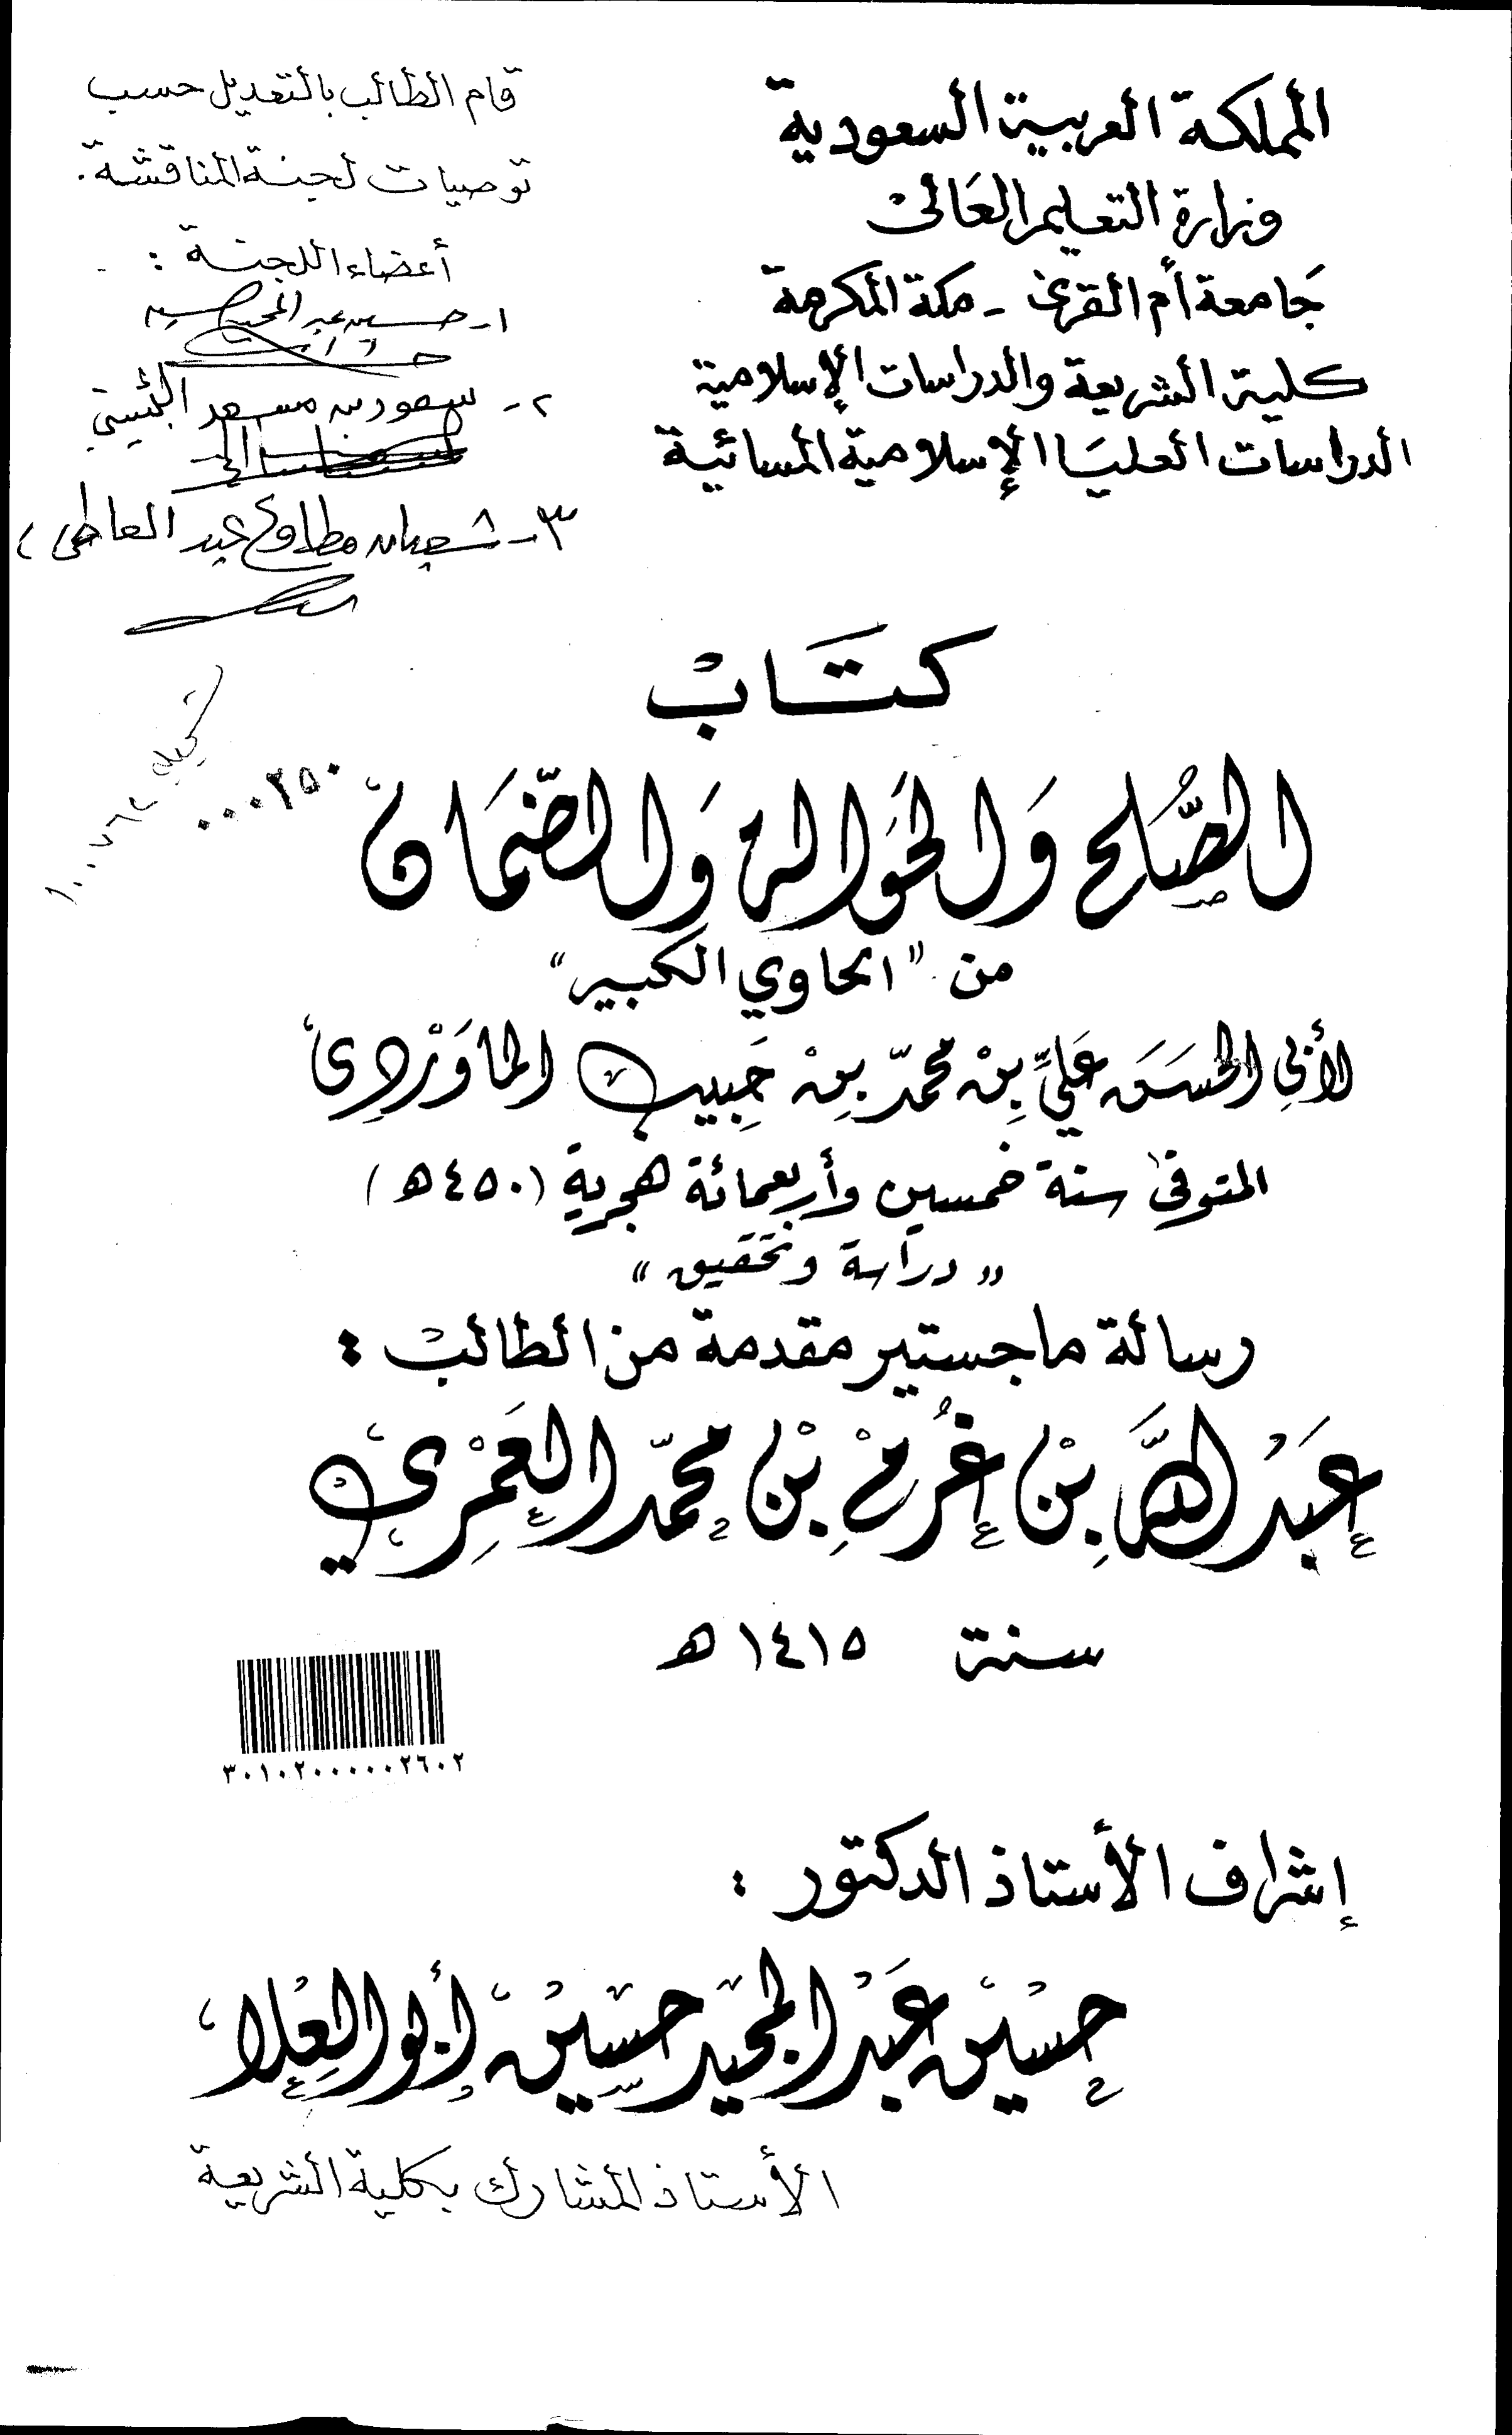 المملكة العربية السعودية
وزارة التعليم العَالىْ
جَامعة أم القرىٰ - مكة المكرمة
كلية الشريعة والدراسات الإسلامية
الدراسات العليَا الإسلامية المسائية
قام الطالب بالتعديل حسب
توصيات لجنة المناقشة.
أعضاء اللجنة :
١- حسين عبد المجيد حسين
٢- سعود بن مسعد الثبيتي
٣- شعبان مطاوع عبد العاطي
كتَابْ
٠٠٠٢٥٠
الصُّلح وَالحَوالة وَالضّمَان
من "الحاوي الكبير"
لأبي الحسَن عَليِّ بِنْ محمّد بِنْ حَبيب الماوَرْدِىْ
المتوفىٰ سنة خمسين وأربعمائة هجرية (٤٥٠ه)
"دراسة وتحقيق"
رسالة ماجستير مقدمة من الطالبْ :
عَبْد اللَّه بِنْ غُرمْ بِنْ محمّد العَمْرِيْ
سنة ١٤١٥ ه
٣٠١٠٢٠٠٠٠٠٢٦٠٢
إشراف الأستاذ الدكتور :
حسْين عَبْد المجيد حسَيْن أبو العِلا
الأستاذ المشارك بكلية الشريعة